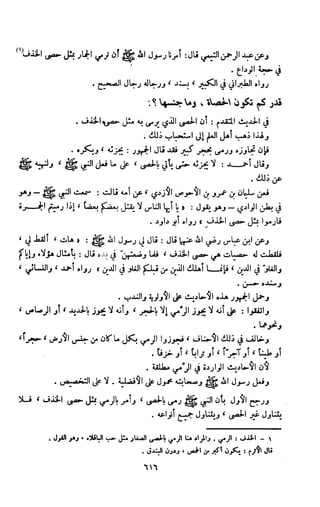 وعن عبد الرحمن التيمي قال : أمرنا رسول الله ﷺ أن نرمي الجمار بمثل حصى الخذف (١)
في حجة الوداع .
رواه الطبراني في الكبير ، بسند ، ورجاله رجال الصحيح .
قدر كم تكون الحصاة ، وما جنسها ؟ :
في الحديث المتقدم : أن الحصى الذي يرمى به مثل حصى الخذف .
ولهذا ذهب أهل العلم إلى استحباب ذلك .
فإن تجاوزه ورمى بحجر كبير فقد قال الجمهور : يجزئه ، ويكره .
وقال أحمد : لا يجزئه حتى يأتي بالحصى ، على ما فعل النبي ﷺ ، ولنهيه ﷺ
عن ذلك .
فعن سليمان بن عمرو بن الأحوص الأزدي ، عن أمه قالت : سمعت النبي ﷺ - وهو
في بطن الوادي - وهو يقول : « يا أيها الناس لا يقتل بعضكم بعضا ، إذا رميتم الجمرة
فارموا بمثل حصى الخذف » رواه أبو داود .
وعن ابن عباس رضي الله عنهما قال : قال لي رسول الله ﷺ : « هات ، ألقط لي »
فلقطت له حصيات هي حصى الخذف ، فلما وضعتهن في يده قال : بأمثال هؤلاء وإياكم
والغلو في الدين ، فإنما أهلك الذين من قبلكم الغلو في الدين » رواه أحمد ، والنسائي ،
وسنده حسن .
وحمل الجمهور هذه الأحاديث على الأولوية والندب .
واتفقوا : على أنه لا يجوز الرمي إلا بالحجر ، وأنه لا يجوز بالحديد ، أو الرصاص ،
ونحوهما .
وخالف في ذلك الأحناف ، فجوزوا الرمي بكل ما كان من جنس الأرض ، حجراً ،
أو طيناً ، أو آجراً ، أو تراباً ، أو خزفاً .
لأن الأحاديث الواردة في الرمي مطلقة .
وفعل رسول الله ﷺ وصحابته محمول على الأفضلية . لا على التخصيص .
ورجح الأول بأن النبي ﷺ رمى بالحصى ، وأمر بالرمي بمثل حصى الخذف ، فلا
يتناول غير الحصى ، ويتناول جميع أنواعه .
١ - الخذف : الرمي . والمراد هنا الرمي بالحصى الصغار مثل حب الباقلاء . وهو الفول .
قال الأثرم : يكون أكبر من الحمص ، ودون البندق .
٦١٦